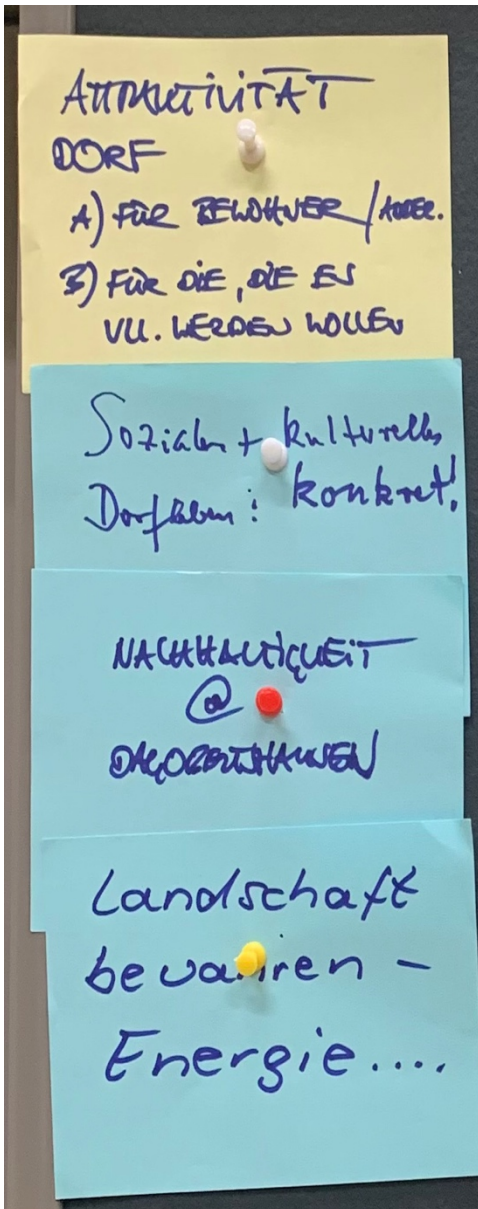 ATTRAKTIVITÄT
DORF
A) FÜR BEWOHNER /
B) FÜR DIE, DIE ES
VLL. WERDEN WOLLEN
Soziales + kulturelles
Dorfleben: konkret!
NACHHALTIGKEIT
@
DAGOBERTSHAUSEN
Landschaft
bewahren -
Energie....